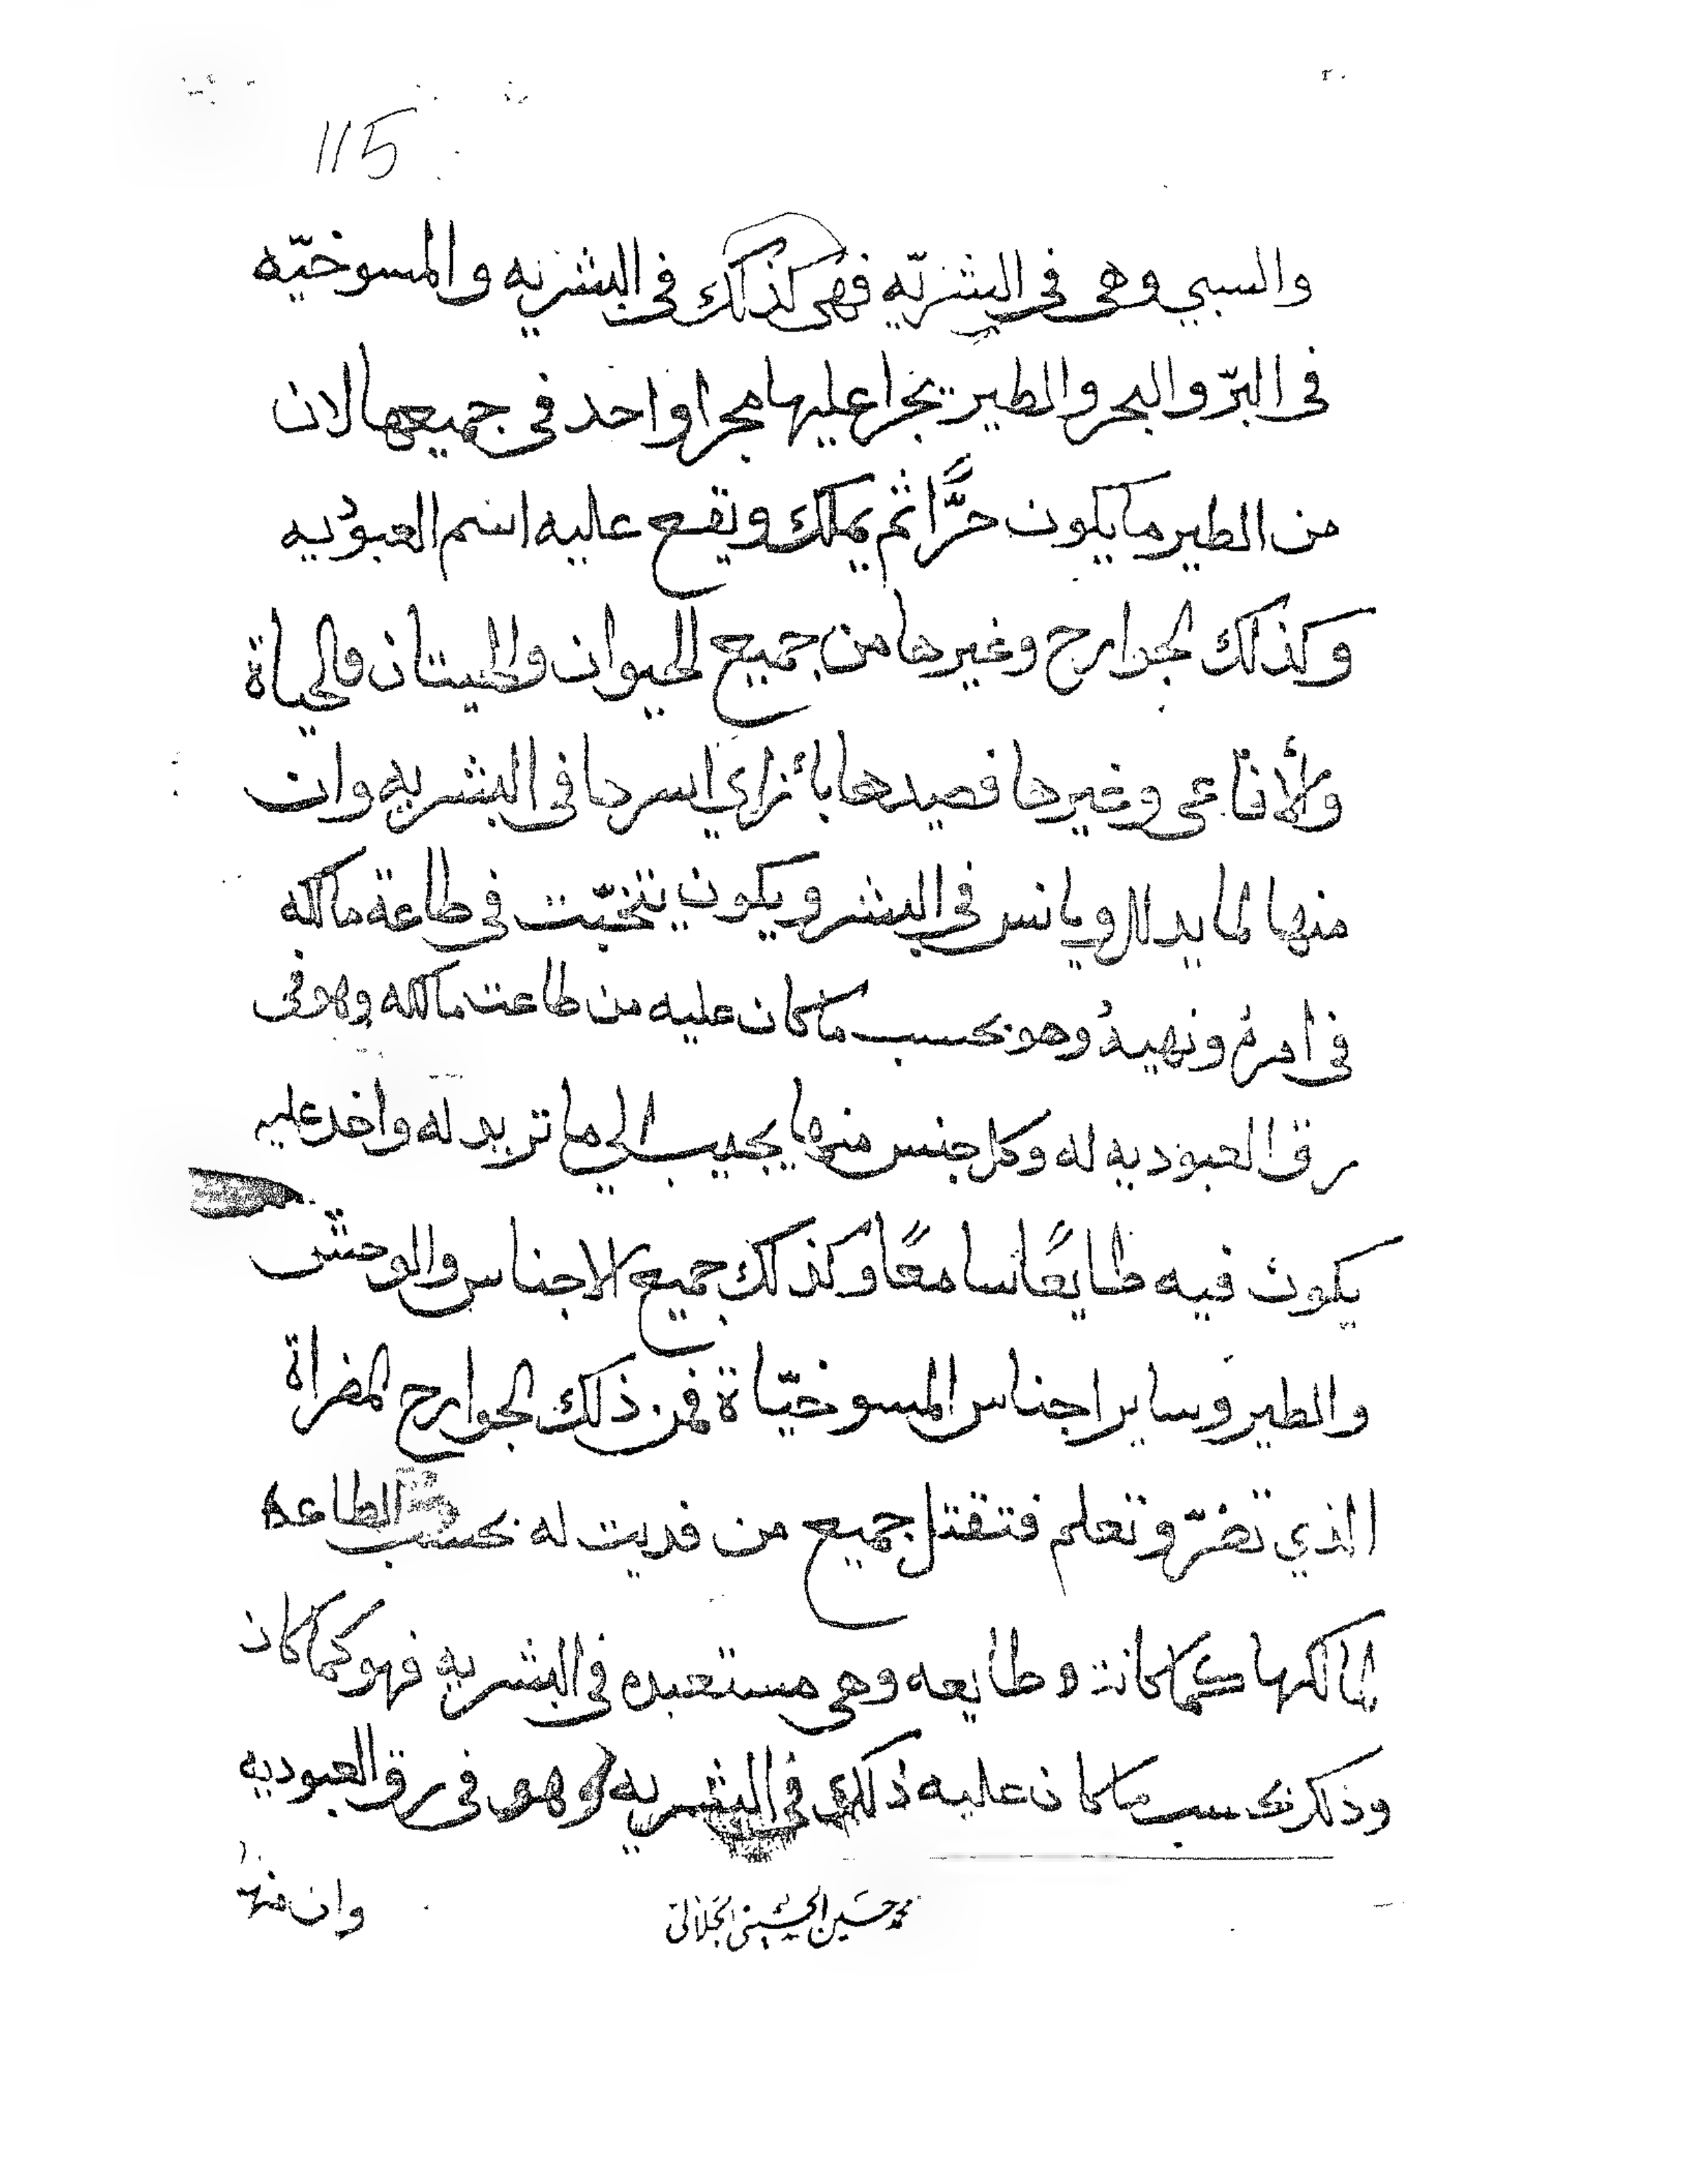 115
والسبي وهي في البشريّه فهي كذلك في البشريه والمسوخيّه
في البرّ والبحر والطير يجرا عليها مجرا واحد في جميعها لان
من الطير ما يكون حرًّا ثم يملك ويقع عليه اسم العبوديه
وكذلك الجوارح وغيرها من جميع الحيوان والحيتان والحياة
والأفاعي وغيرها فصيدها بأزاي اسرها في البشريه وان
منها لما يدلل ويانس في البشر ويكون يتخبّت في طاعة مالكه
في امره ونهيه وهو بحسب ما كان عليه من طاعت مالكه وهو في
رق العبوديه له وكل جنس منها يجيب الي ما تريد له واخد عليه
يكون فيه طايعًا سامعًا وكذلك جميع الاجناس والوحش
والطير وساير اجناس المسوخيّاة فمن ذلك الجوارح المضراة
الذي تضرّ وتعلم فتقتل جميع من فديت له بحسب الطاعه
لمالكها كما كانت طايعه وهي مستعبده في البشريه فهو كما كان
وذلك بحسب ما كان عليه ذلك في البشريه وهو في رق العبوديه
وان منها
محمد حسين الحسيني الجلالي